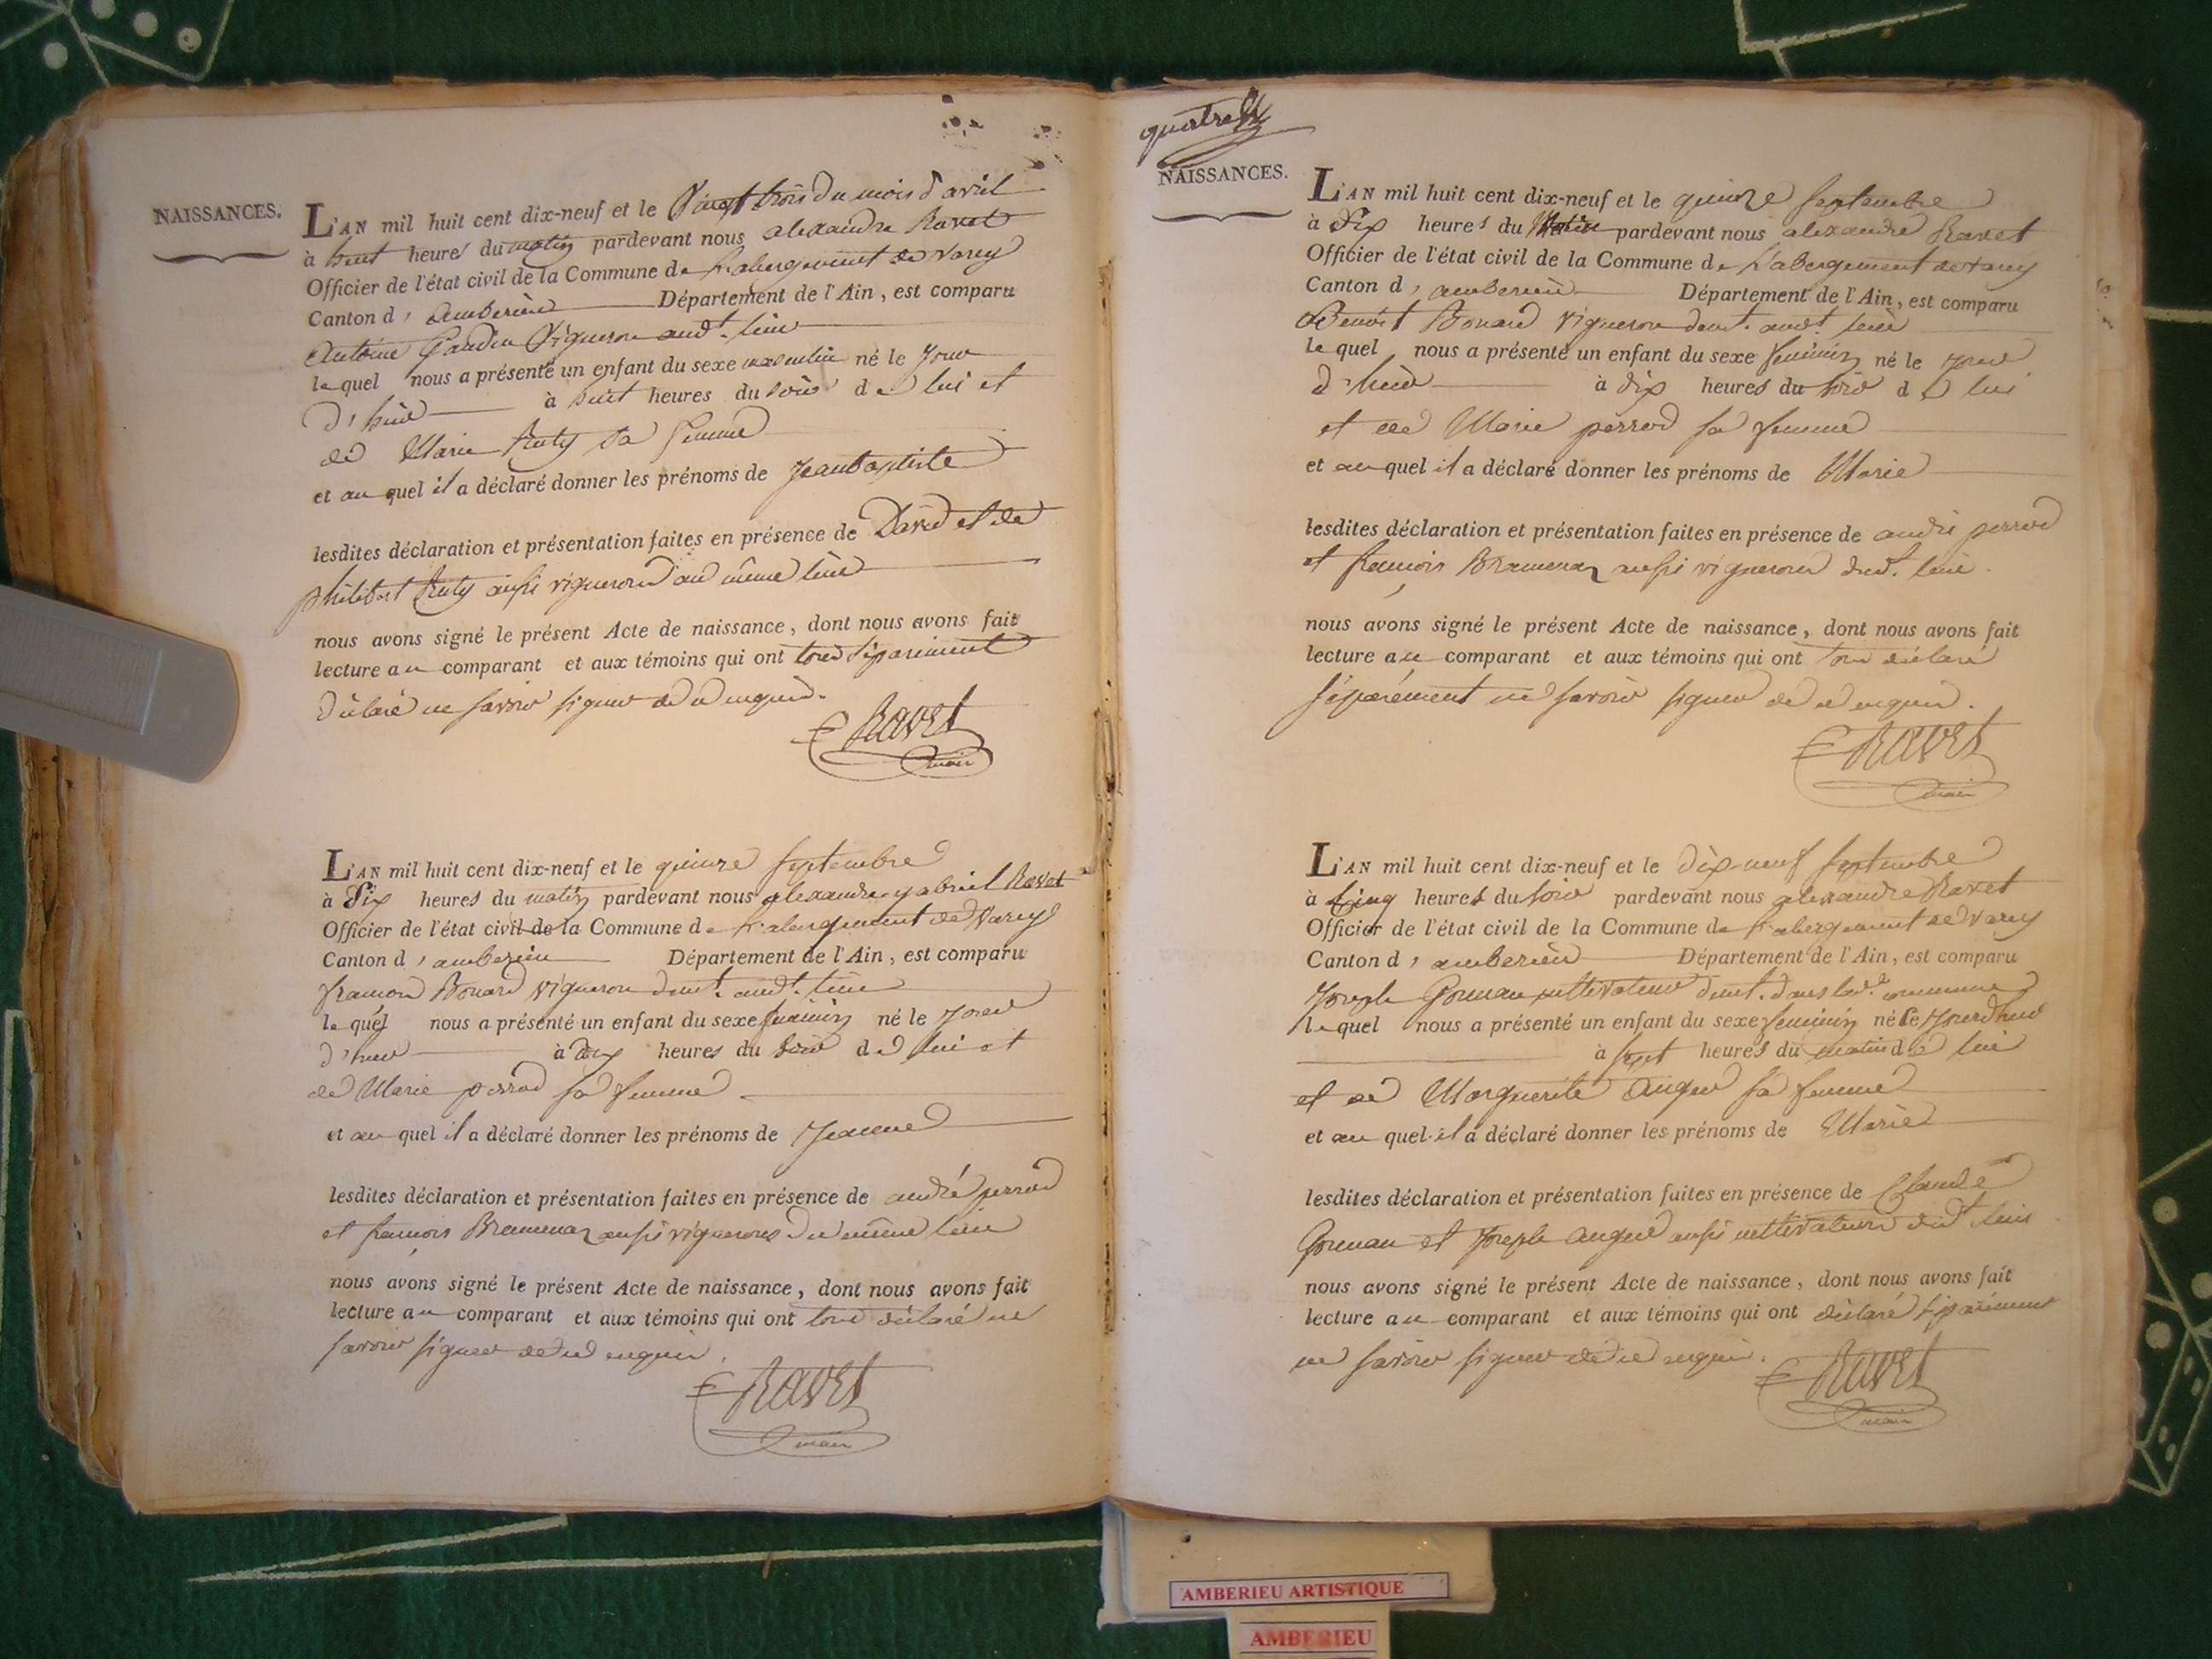 NAISSANCES.
L'AN mil huit cent dix-neuf et le Vingt trois du mois d'avril
à huit heures du matin pardevant nous alexandre Ravet
Officier de l'état civil de la Commune de L'abergement de Varey
Canton d'amberieu Département de l'Ain, est comparu
Antoine Gaudin Vigneron audt. lieu
lequel nous a présenté un enfant du sexe masculin né le Jour
d'hier à huit heures du soir de lui et
de Marie Ruty sa femme
et auquel il a déclaré donner les prénoms de Jeanbaptiste
lesdites déclaration et présentation faites en présence de David et de
philibert Ruty aussi vignerons au même lieu
nous avons signé le présent Acte de naissance, dont nous avons fait
lecture au comparant et aux témoins qui ont tous séparément
déclaré ne savoir signer de ce enquis.
Ravet
maire
L'AN mil huit cent dix-neuf et le quinze septembre
à Dix heures du matin pardevant nous alexandre gabriel Ravet
Officier de l'état civil de la Commune de L'abergement de Varey
Canton d'amberieu Département de l'Ain, est comparu
francois Bonard vigneron demt. audt. lieu
lequel nous a présenté un enfant du sexe feminin né le Jour
d'hier à dix heures du soir de lui et
de Marie perrod sa femme
et auquel il a déclaré donner les prénoms de Jeanne
lesdites déclaration et présentation faites en présence de andré perrod
et francois Bramenaz aussi vignerons du même lieu
nous avons signé le présent Acte de naissance, dont nous avons fait
lecture au comparant et aux témoins qui ont tous déclaré ne
savoir signer de ce enquis.
Ravet
maire
quatre
NAISSANCES.
L'AN mil huit cent dix-neuf et le quinze septembre
à Dix heures du Matin pardevant nous alexandre Ravet
Officier de l'état civil de la Commune de L'abergement de Varey
Canton d'amberieu Département de l'Ain, est comparu
Benoit Bonard vigneron demt. audt. lieu
lequel nous a présenté un enfant du sexe feminin né le Jour
d'hier à dix heures du soir de lui
et de Marie perrod sa femme
et auquel il a déclaré donner les prénoms de Marie
lesdites déclaration et présentation faites en présence de andré perrod
et francois Bramenaz aussi vignerons dudt. lieu.
nous avons signé le présent Acte de naissance, dont nous avons fait
lecture au comparant et aux témoins qui ont tous déclaré
séparément ne savoir signer de ce enquis.
Ravet
maire
L'AN mil huit cent dix-neuf et le dix-neuf septembre
à Cinq heures du soir pardevant nous alexandre Ravet
Officier de l'état civil de la Commune de L'abergement de Varey
Canton d'amberieu Département de l'Ain, est comparu
Joseph cultivateur demt. dans lade. commune
lequel nous a présenté un enfant du sexe feminin né le Jourd'hui
à sept heures du matin de lui
et de Marguerite sa femme
et auquel il a déclaré donner les prénoms de Marie
lesdites déclaration et présentation faites en présence de Claude
et Joseph aussi cultivateurs dudt lieu
nous avons signé le présent Acte de naissance, dont nous avons fait
lecture au comparant et aux témoins qui ont déclaré séparément
ne savoir signer de ce enquis.
Ravet
maire
AMBERIEU ARTISTIQUE
AMBERIEU